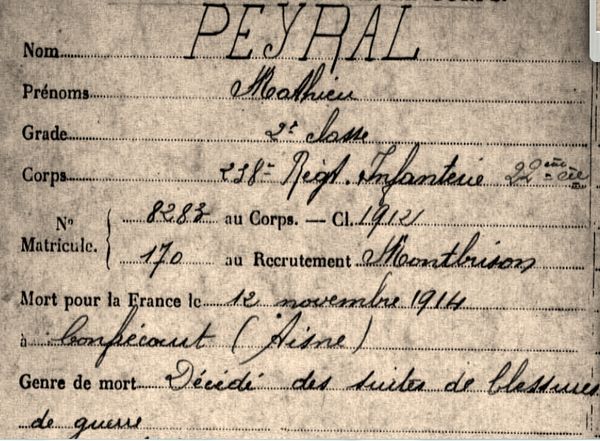 Nom PEYRAL
Prénoms Mathieu
Grade 2e classe
Corps 238e Régt. Infanterie 22ème Cie
No Matricule. 8283 au Corps. — Cl. 1912
170 au Recrutement Montbrison
Mort pour la France le 12 novembre 1914
à Confrécourt (Aisne)
Genre de mort Décédé des suites de blessures
de guerre